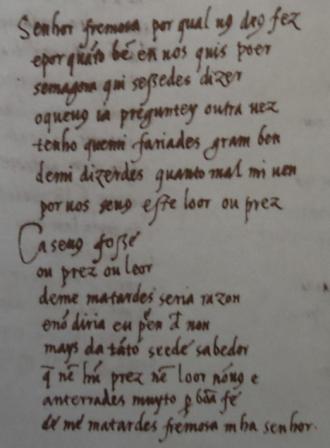 Senhor fremosa por qual nꝯ deꝯ fez
epor quãto bẽ en uos quis poer
semagora qui sessedes dizer
oqueuꝯ ia preguntey outra uez
tenho quemi fariades gram ben
demi dizerdes quanto mal mi uen
por uos seuꝯ este loor ou prez
Ca seuꝯ fosse
ou prez ou loor
deme matardes seria razon
enõ diria eu pẽn de non
mays da tãto seede sabedor
q̃ nẽ hũ prez nẽ loor nõuꝯ e
anterrades muyto ꝑ bõa fe
de me matardes fremosa mha senhor.